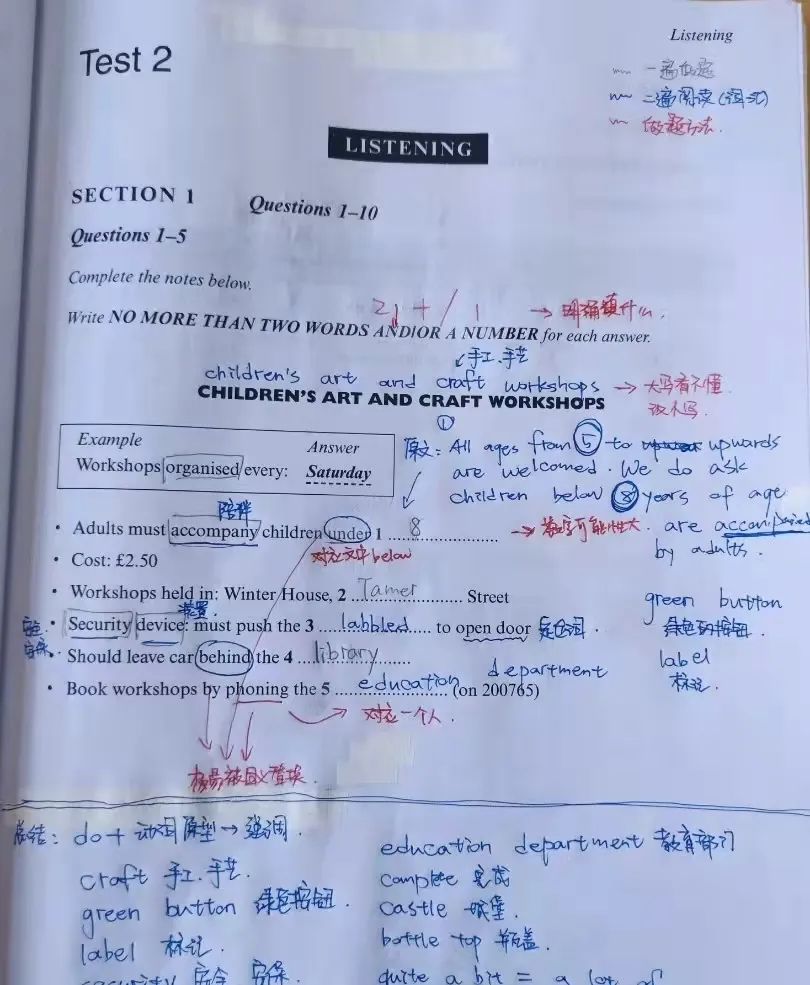 Listening
Test 2
一遍做题
二遍阅读(词汇)
做题方法.
LISTENING
SECTION 1 Questions 1–10
Questions 1–5
Complete the notes below.
2个 + / 1 → 明确填什么.
Write NO MORE THAN TWO WORDS AND/OR A NUMBER for each answer.
手工.手艺
children's art and craft workshops → 大写看不懂
改小写.
CHILDREN'S ART AND CRAFT WORKSHOPS
①
Example Answer
Workshops organised every: Saturday
原文: All ages from 5 to upwards
are welcomed. We do ask
children below 8 years of age
are accompanied
by adults.
陪伴
• Adults must accompany children under 1 8 → 数字可能性大.
对应文中below
• Cost: £2.50
• Workshops held in: Winter House, 2 Tamer Street
装置.
• Security device: must push the 3 labbled to open door 定位词.
安全.
安保.
green button
绿色的按钮.
label
标记.
• Should leave car behind the 4 library
• Book workshops by phoning the 5 education department (on 200765)
→ 对应一个人.
极易被同义替换.
总结: do + 动词原型 → 强调.
craft 手工.手艺.
green button 绿色按钮.
label 标记.
security 安全 安保.
education department 教育部门
complete 完成
castle 城堡.
bottle top 瓶盖.
quite a bit = a lot of